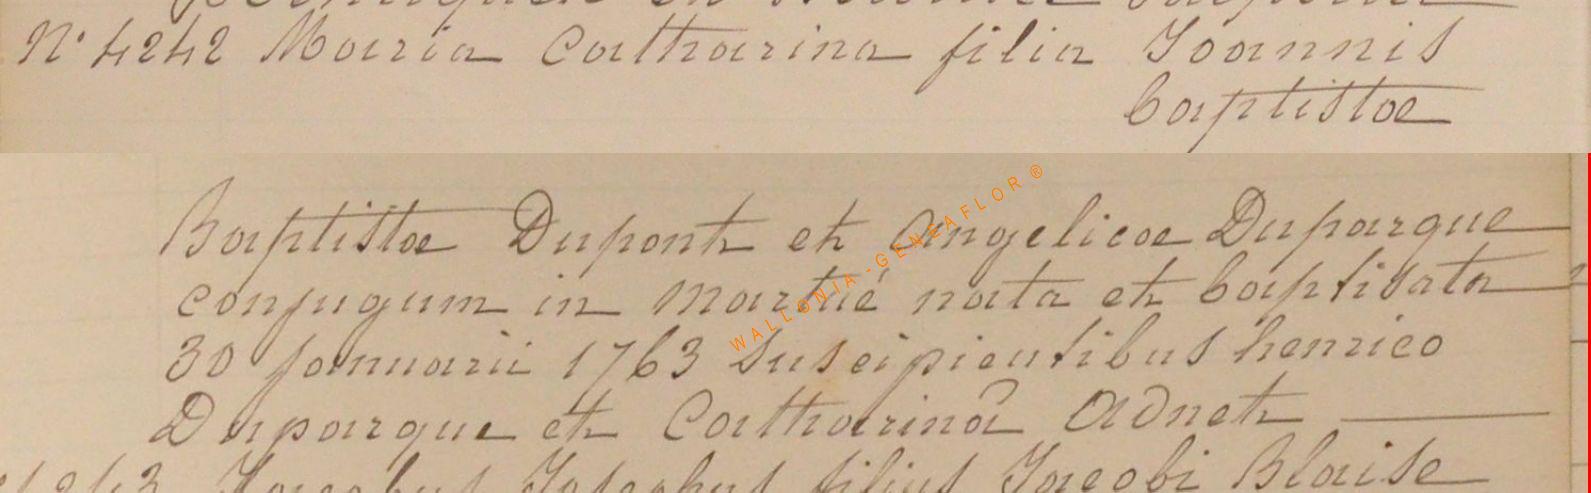 N° 4242 Maria Catharina filia Joannis
baptistae
Baptistae Dupont et Angelicae Duparque
conjugum in Martué nata et baptisata
30 januarii 1763 Suscipientibus henrico
Duparque et Catharinâ Adnet
4243 Jacobus Josephus filius Jacobi Blaise
WALLONIA-GENEAFLOR®